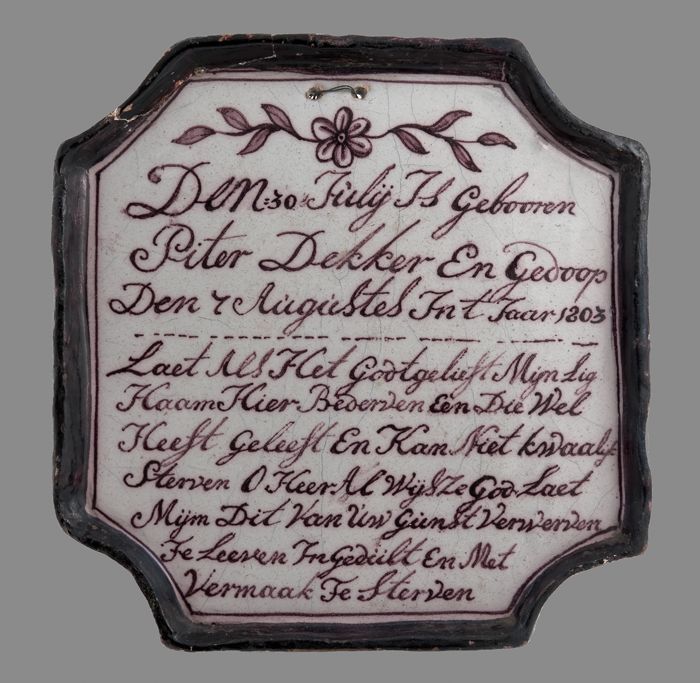 Den :30: Julÿ Is Gebooren
Piter Dekker En Gedoop
Den 7 Augustes In t Jaar 1803
Laet Als Het Godtgelieft Mijn Lig
Haam Hier Bederven Een Die Wel
Heeft geleeft En Kan Niet kwaalyk
Sterven O Heer Al Wijsze God Laet
Mijm Dit Van Uw Gunst Verwerven
Te Leeven In Gedult En Met
Vermaak Te Sterven